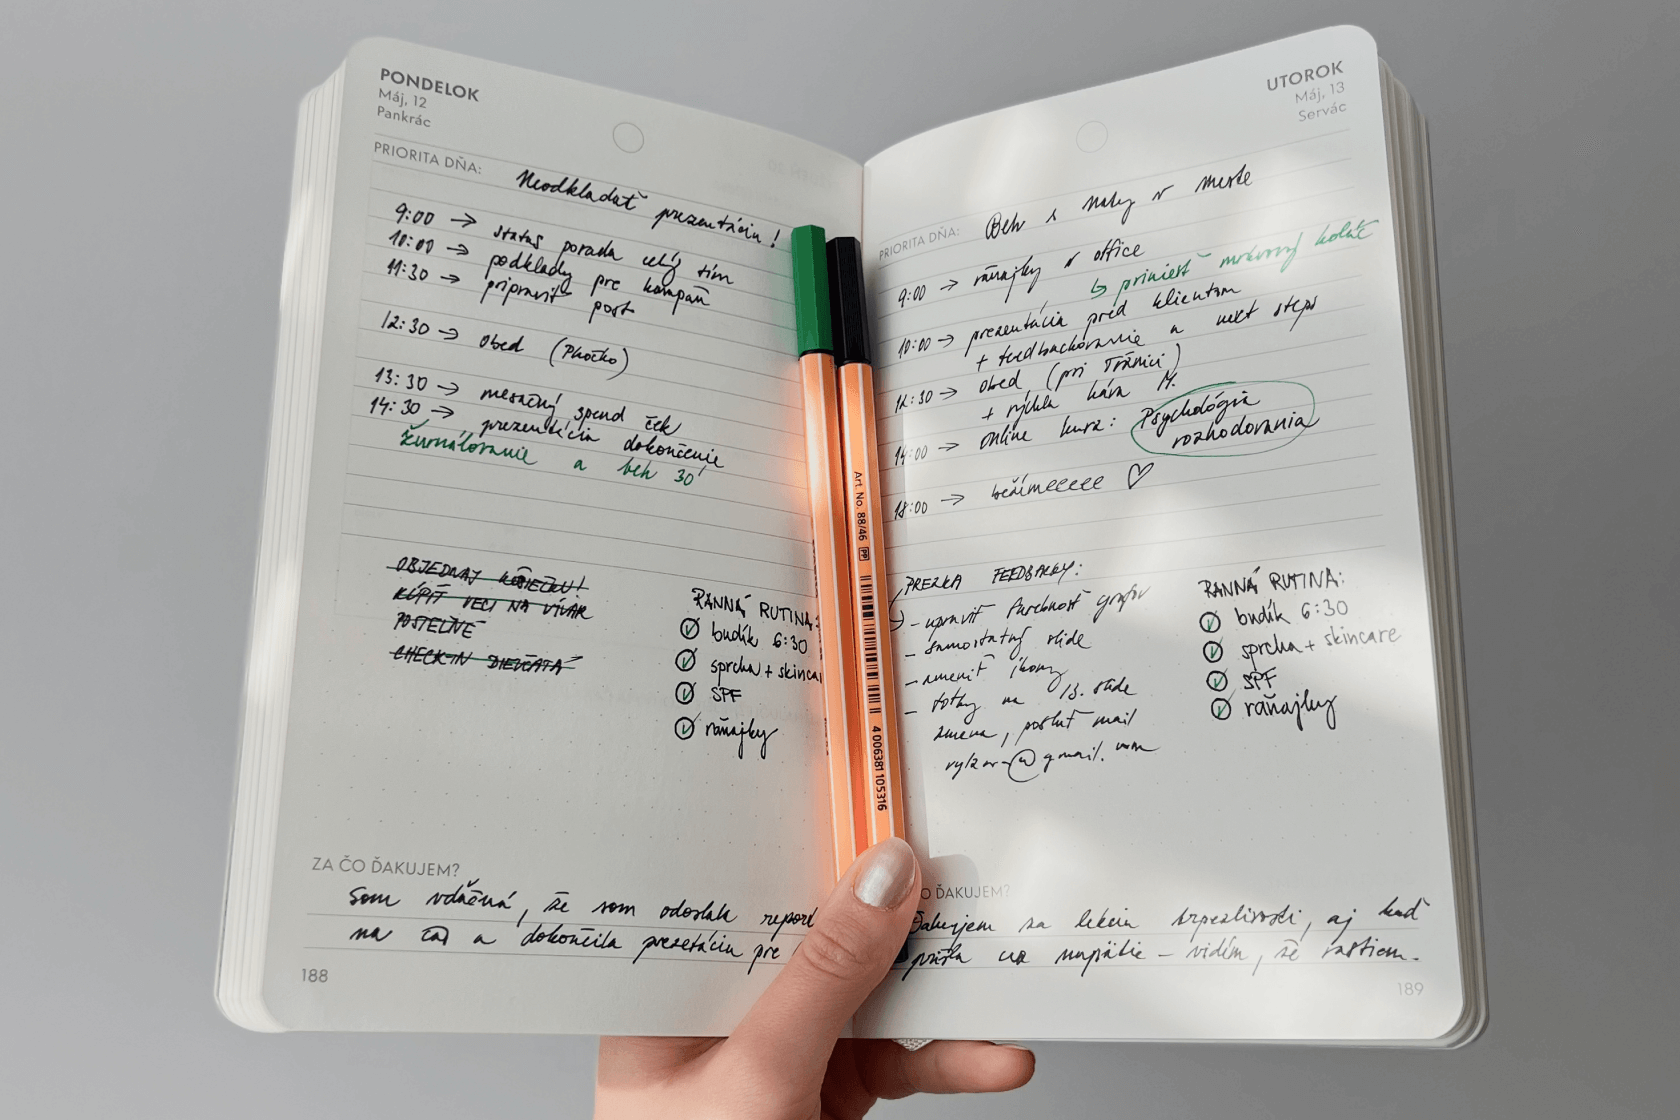 PONDELOK
Máj, 12
Pankrác
PRIORITA DŇA:
Neodkladať prezentáciu!
9:00 → status porada celý tím
10:00 → podklady pre kampaň
11:30 → pripraviť post
12:30 → obed
13:30 → mesačný spend ček
14:30 → prezentácia dokončenie
žurnálovanie a beh 30'
OBJEDNAJ KÓSIEČKU!
KÚPIŤ VECI NA VÍVAR
POSTEĽNÉ
CHECK-IN DIEVČATÁ
RANNÁ RUTINA:
budík 6:30
sprcha + skincar
SPF
raňajky
ZA ČO ĎAKUJEM?
Som vďačná, že som odoslala report
na čas a dokončila prezetáciu pre
188
UTOROK
Máj, 13
Servác
PRIORITA DŇA:
Beh s v meste
9:00 → raňajky v office
↳ priniesť mrkvový koláč
10:00 → prezentácia pred klientom
+ feedbackovanie a next steps
12:30 → obed (pri Tržnici)
+ rýchla káva M.
14:00 → online kurz: Psychológia
rozhodovania
18:00 → bežímeeeee ♡
PREZKA FEEDBACKY:
- upraviť farebnosť grafov
- samostatný slide
- zmeniť ikony
- fotky na 13. slide
zmena, poslať mail
@gmail.com
RANNÁ RUTINA:
budík 6:30
sprcha + skincare
SPF
raňajky
O ĎAKUJEM?
Ďakujem za lekciu trpezlivosti, aj keď
prišla cez napätie – vidím, že rastiem.
189
Art. No. 88/46 PP
4 006381 105316